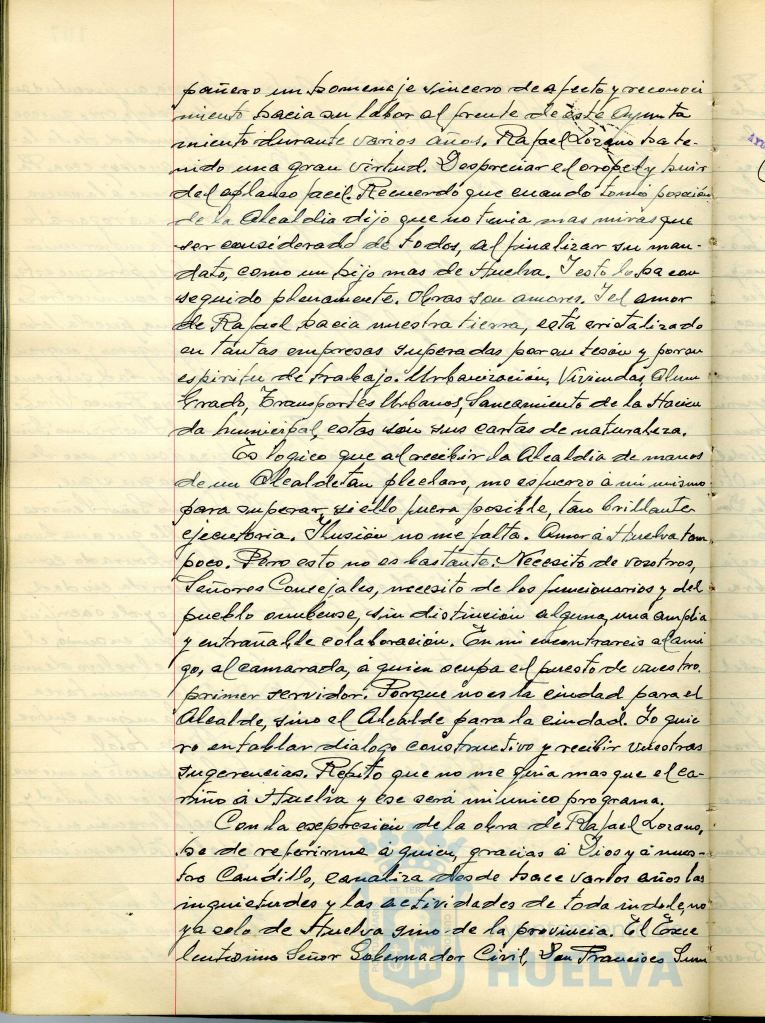 pañero un homenaje sincero de afecto y reconoci
miento hacia su labor al frente de este Ayunta
miento durante varios años. Rafael Lozano ha te-
nido una gran virtud. Despreciar el oropel y huir
del aplauso facil. Recuerdo que cuando tomó posesión
de la Alcaldia dijo que no tenia mas miras que
ser considerado de todos, al finalizar su man-
dato, como un hijo mas de Huelva. Y esto lo ha con
seguido plenamente. Obras son amores. Y el amor
de Rafael hacia nuestra tierra, está cristalizado
en tantas empresas superadas por su tesón y por su
espiritu de trabajo. Urbanización, Viviendas, Alum
brado, Transportes Urbanos, Saneamiento de la Hacien
da Municipal, estas son sus cartas de naturaleza.
Es logico que al recibir la Alcaldia de manos
de un Alcalde tan preclaro, me esfuerzo á mi mismo
para superar, si ello fuera posible, tan brillante
ejecutoria. Ilusión no me falta. Amor á Huelva tam
poco. Pero esto no es bastante. Necesito de vosotros,
Señores Consejales, necesito de los funcionarios y del
pueblo onubense, sin distinción alguna, una amplia
y entrañable colaboración. En mi encontrareis al ami
go, al camarada, a quien ocupa el puesto de vuestro
primer servidor. Porque no es la ciudad para el
Alcalde, sino el Alcalde para la ciudad. Yo quie
ro entablar dialogo constructivo y recibir vuestras
sugerencias. Repito que no me guia mas que el ca-
riño á Huelva y ese será mi unico programa.
Con la expresión de la obra de Rafael Lozano,
he de referirme á quien, gracias á Dios y á nues-
tro Caudillo, canaliza desde hace varios años las
inquietudes y las actividades de toda indole, no
ya solo de Huelva sino de la provincia. El Exce
lentisimo Señor Gobernador Civil, Don Francisco Sum
HUELVA